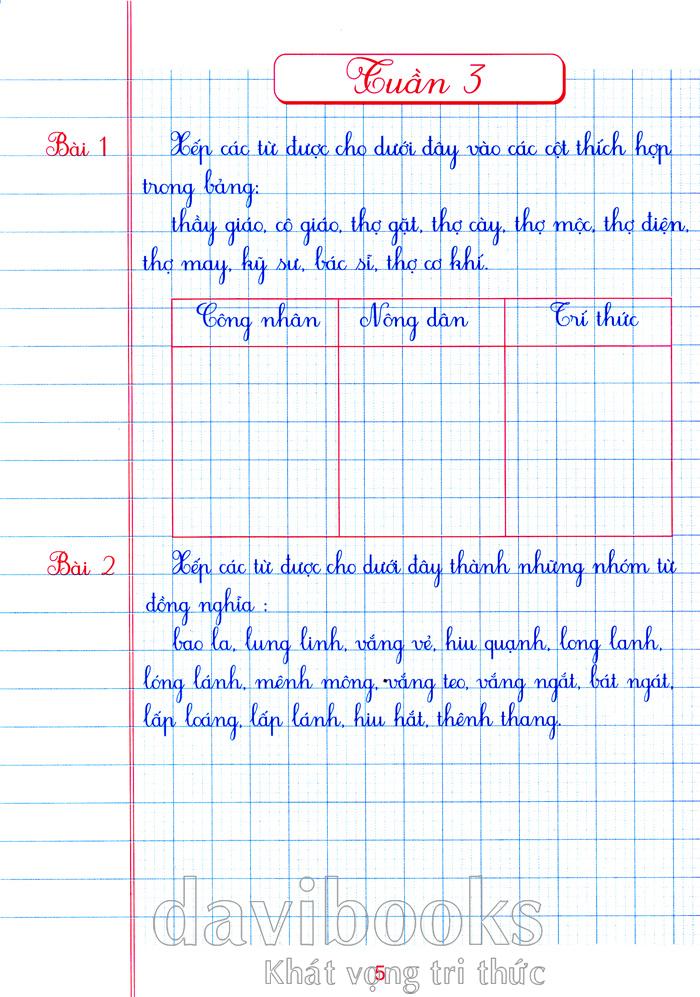 Tuần 3
Bài 1
Xếp các từ được cho dưới đây vào các cột thích hợp
trong bảng:
thầy giáo, cô giáo, thợ gặt, thợ cày, thợ mộc, thợ điện,
thợ may, kỹ sư, bác sĩ, thợ cơ khí.
Công nhân Nông dân Trí thức
Bài 2
Xếp các từ được cho dưới đây thành những nhóm từ
đồng nghĩa :
bao la, lung linh, vắng vẻ, hiu quạnh, long lanh,
lóng lánh, mênh mông, vắng teo, vắng ngắt, bát ngát,
lấp loáng, lấp lánh, hiu hắt, thênh thang.
davibooks
Khát vọng tri thức
5